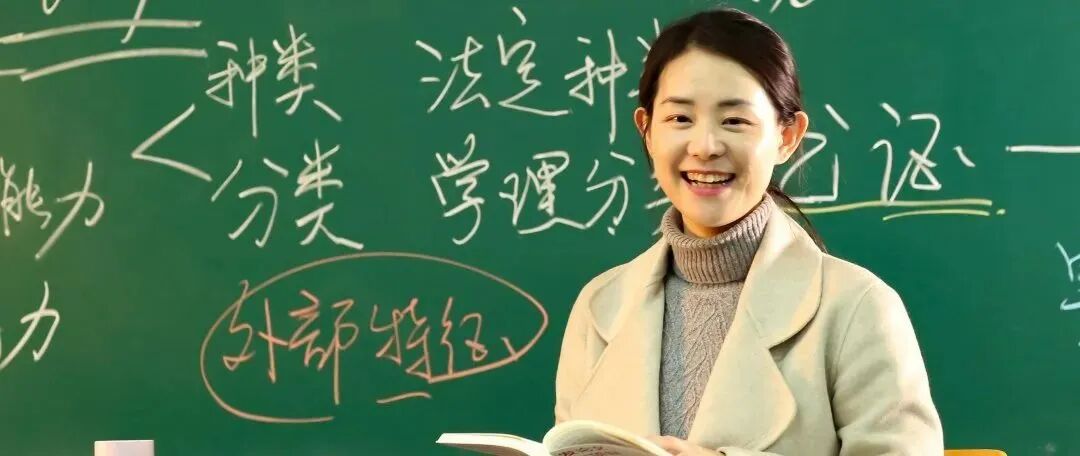 种类 法定种
分类 学理分 证
能力
外部特征
力